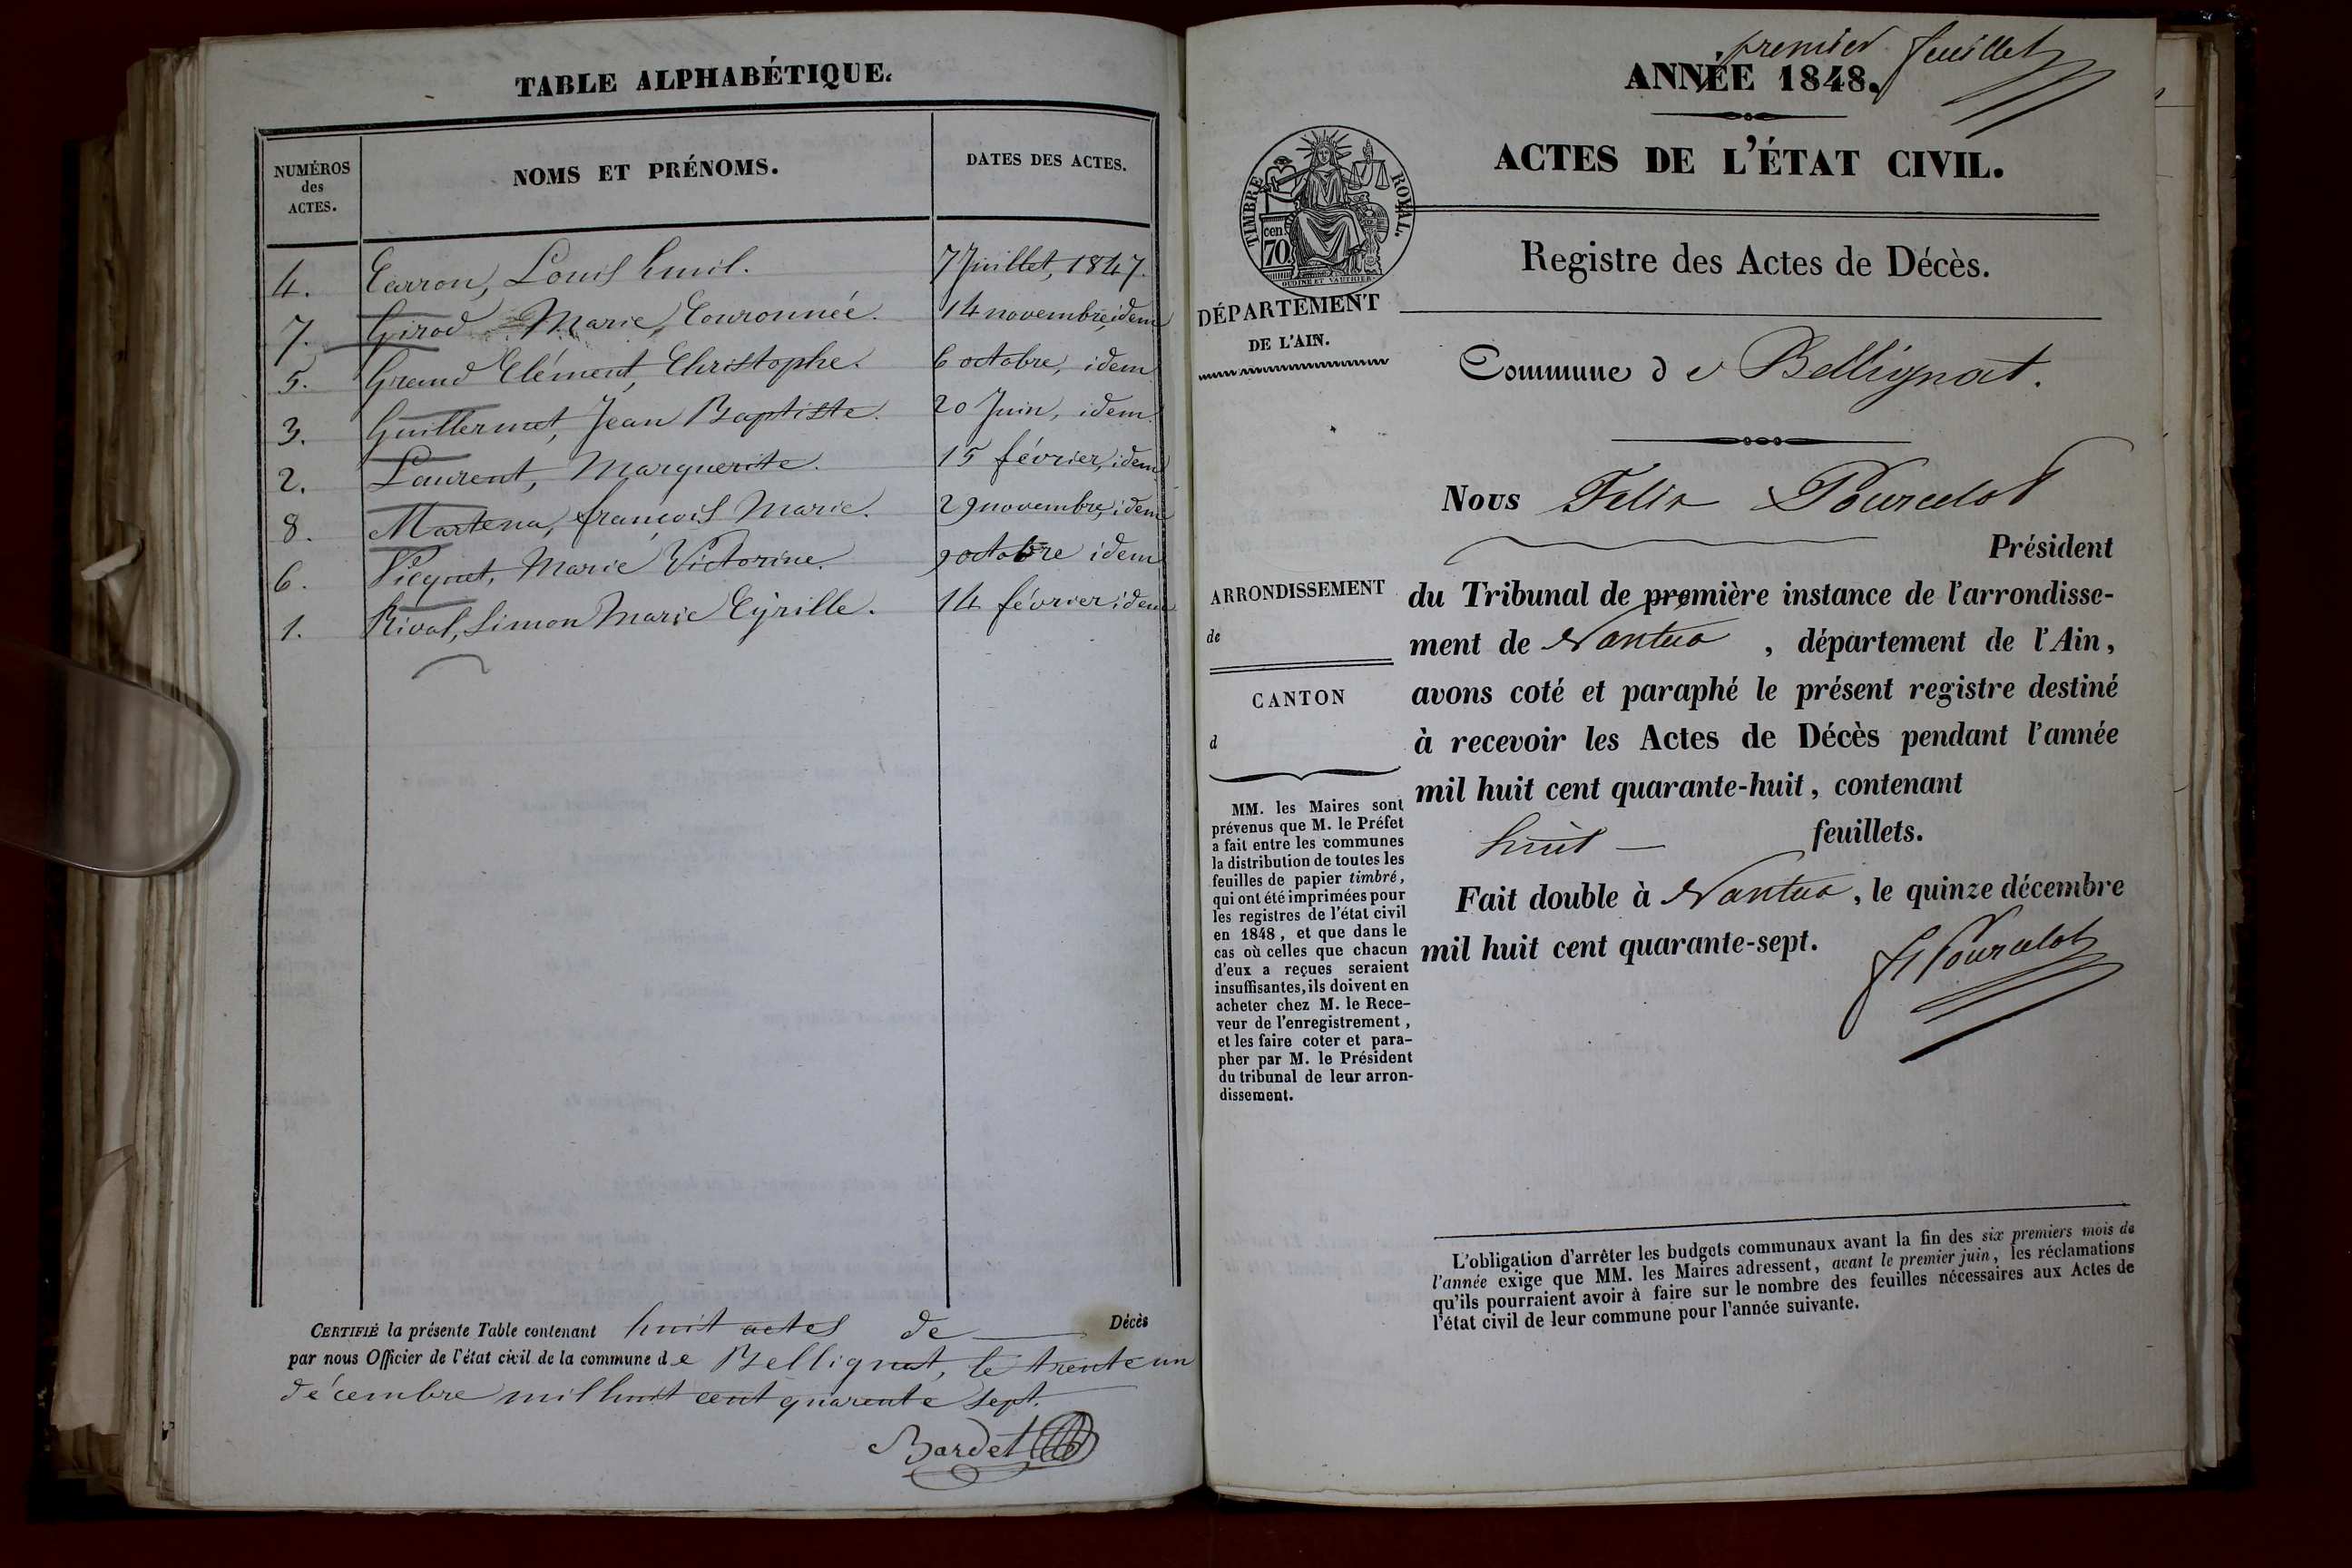 TABLE ALPHABÉTIQUE.
NUMÉROS
des
ACTES.
NOMS ET PRÉNOMS.
DATES DES ACTES.
4. Carron, Louis Emil. 7 Juillet, 1847.
7. Girod Marie, Couronnée. 14 novembre, idem
5. Grand Clément, Christophe. 6 octobre, idem
3. Guillermet, Jean Baptiste. 20 Juin, idem
2. Laurent, Marguerite. 15 février, idem
8. Martena, françois Marie. 29 novembre, idem
6. Picquet, Marie Victorine. 9 octobre idem
1. Rival, Simon Marie Cyrille. 14 février idem
CERTIFIÉ la présente Table contenant huit actes de Décès
par nous Officier de l'état civil de la commune de Bellignat, le trente un
décembre mil huit cent quarente sept.
Bardet
premier feuillet
ANNÉE 1848.
ACTES DE L'ÉTAT CIVIL.
TIMBRE ROYAL.
70 cen
OUDINÉ ET VAUTHIER
Registre des Actes de Décès.
DÉPARTEMENT
DE L'AIN.
Commune de Bellignat.
Nous Felix Pourcelot
Président
du Tribunal de première instance de l'arrondisse-
ment de Nantua, département de l'Ain,
avons coté et paraphé le présent registre destiné
à recevoir les Actes de Décès pendant l'année
mil huit cent quarante-huit, contenant
huit — feuillets.
Fait double à Nantua, le quinze décembre
mil huit cent quarante-sept.
F Pourcelot
ARRONDISSEMENT
de
CANTON
d
MM. les Maires sont
prévenus que M. le Préfet
a fait entre les communes
la distribution de toutes les
feuilles de papier timbré,
qui ont été imprimées pour
les registres de l'état civil
en 1848, et que dans le
cas où celles que chacun
d'eux a reçues seraient
insuffisantes, ils doivent en
acheter chez M. le Rece-
veur de l'enregistrement,
et les faire coter et para-
pher par M. le Président
du tribunal de leur arron-
dissement.
L'obligation d'arrêter les budgets communaux avant la fin des six premiers mois de
l'année exige que MM. les Maires adressent, avant le premier juin, les réclamations
qu'ils pourraient avoir à faire sur le nombre des feuilles nécessaires aux Actes de
l'état civil de leur commune pour l'année suivante.